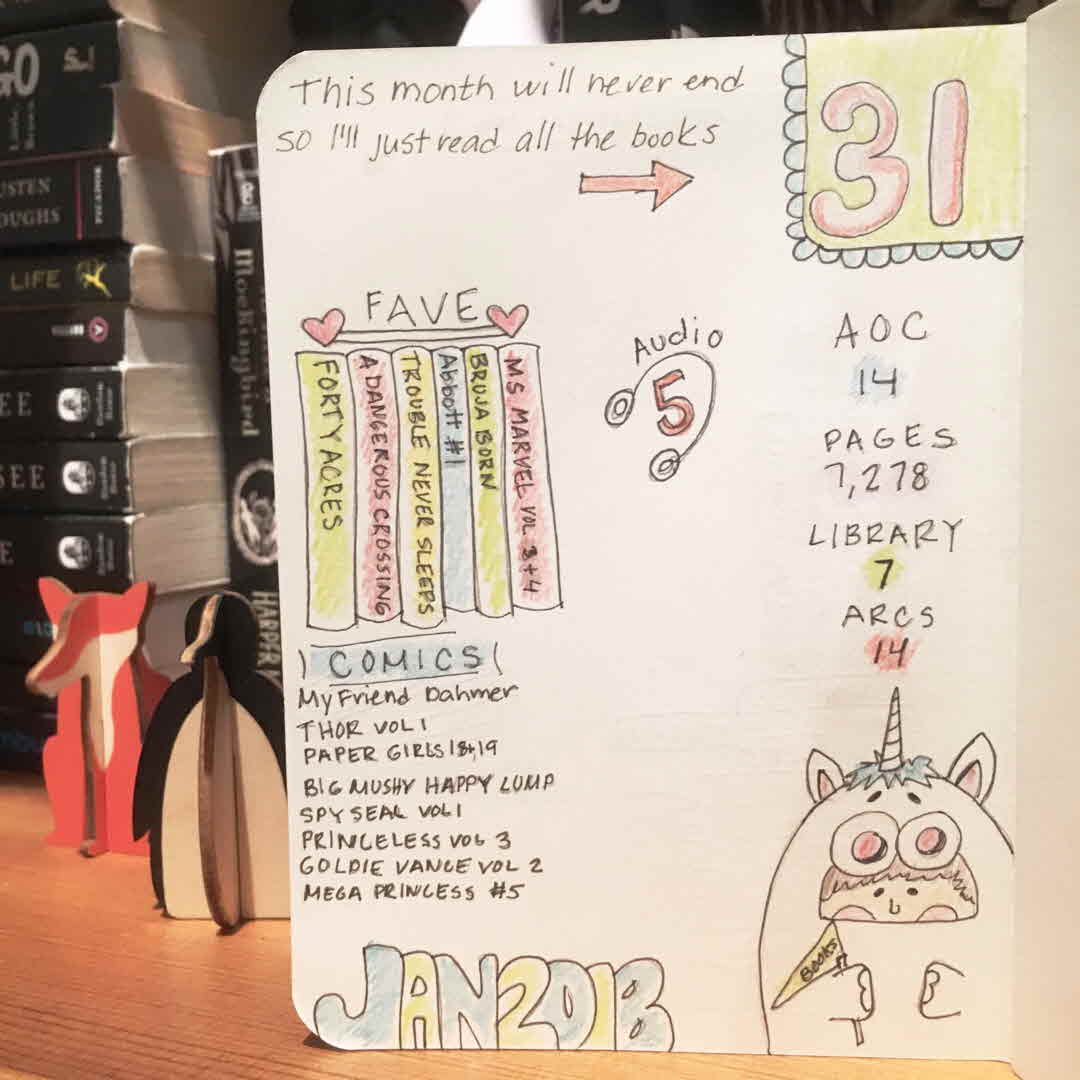 This month will never end
so I'll just read all the books
31
FAVE
FORTY ACRES
A DANGEROUS CROSSING
TROUBLE NEVER SLEEPS
Abbott #1
BRUJA BORN
MS MARVEL VOL 3+4
Audio
5
AOC
14
PAGES
7,278
LIBRARY
7
ARCS
14
COMICS
My Friend Dahmer
THOR VOL 1
PAPER GIRLS 18+19
BIG MUSHY HAPPY LUMP
SPY SEAL VOL 1
PRINCELESS VOL 3
GOLDIE VANCE VOL 2
MEGA PRINCESS #5
BOOKS
JAN 2018
GO
USTEN
OUGHS
PICADOR
LIFE
EE
SEE
E
Mockingbird
HARPER